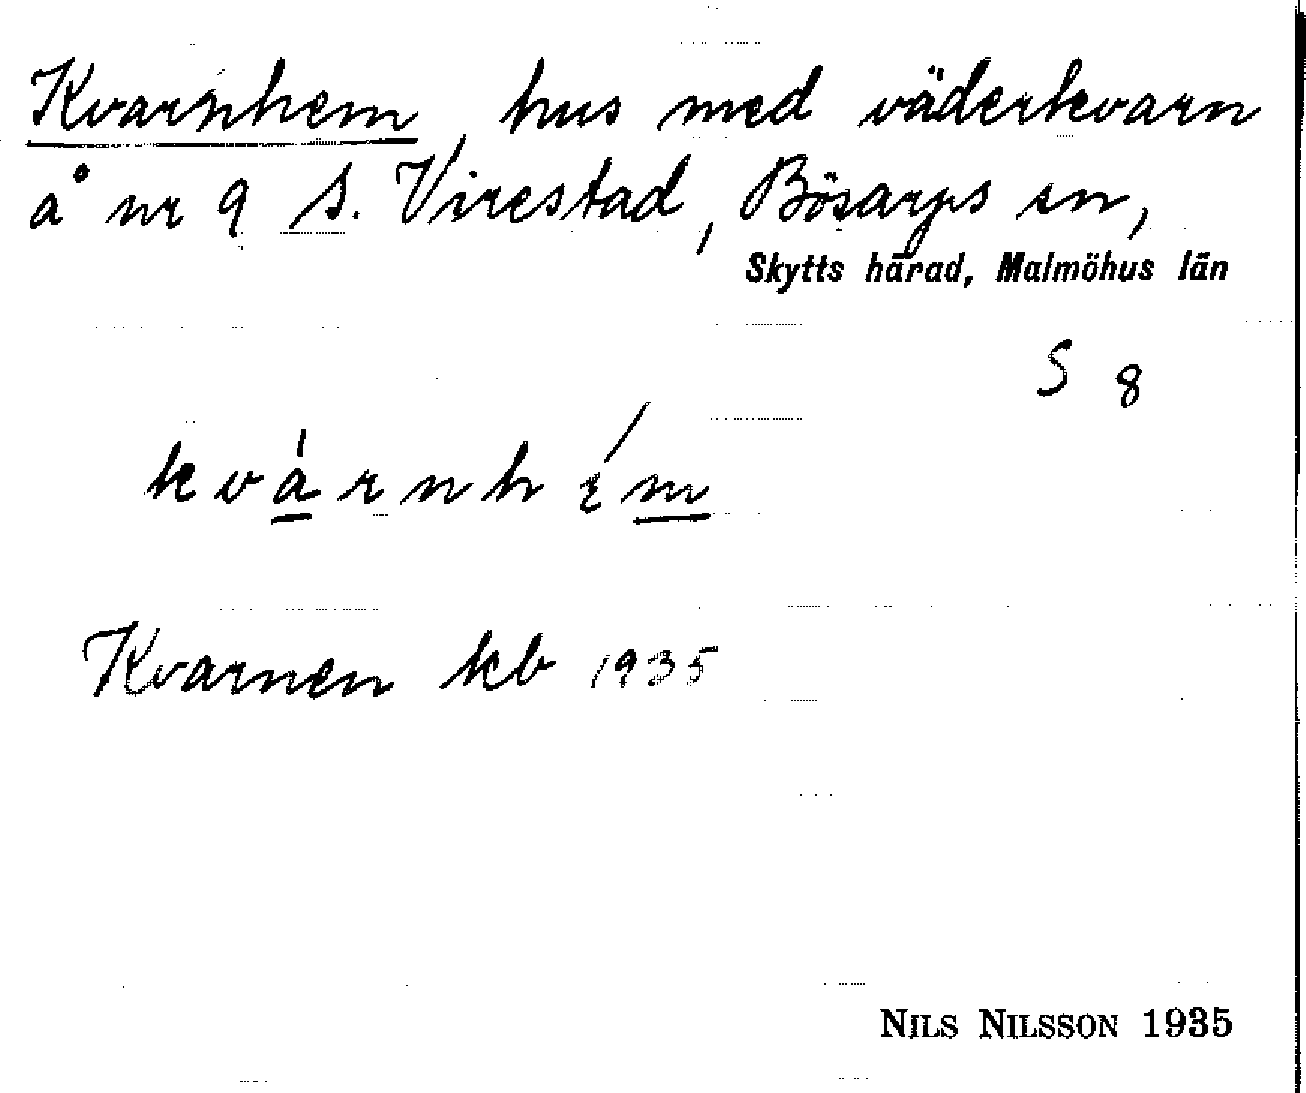 Kvarnhem, hus med väderkvarn
å nr 9 S. Virestad, Bösarps sn,
Skytts härad, Malmöhus län
S 8
kvàrnhém
Kvarnen kb 1935
NILS NILSSON 1935